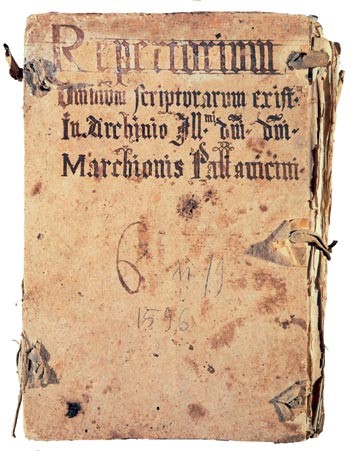 Repertorium
Omnium scripturarum exist.
In Archivio Ill.mi dm. dm.
Marchionis Pallavicini.
6
1596